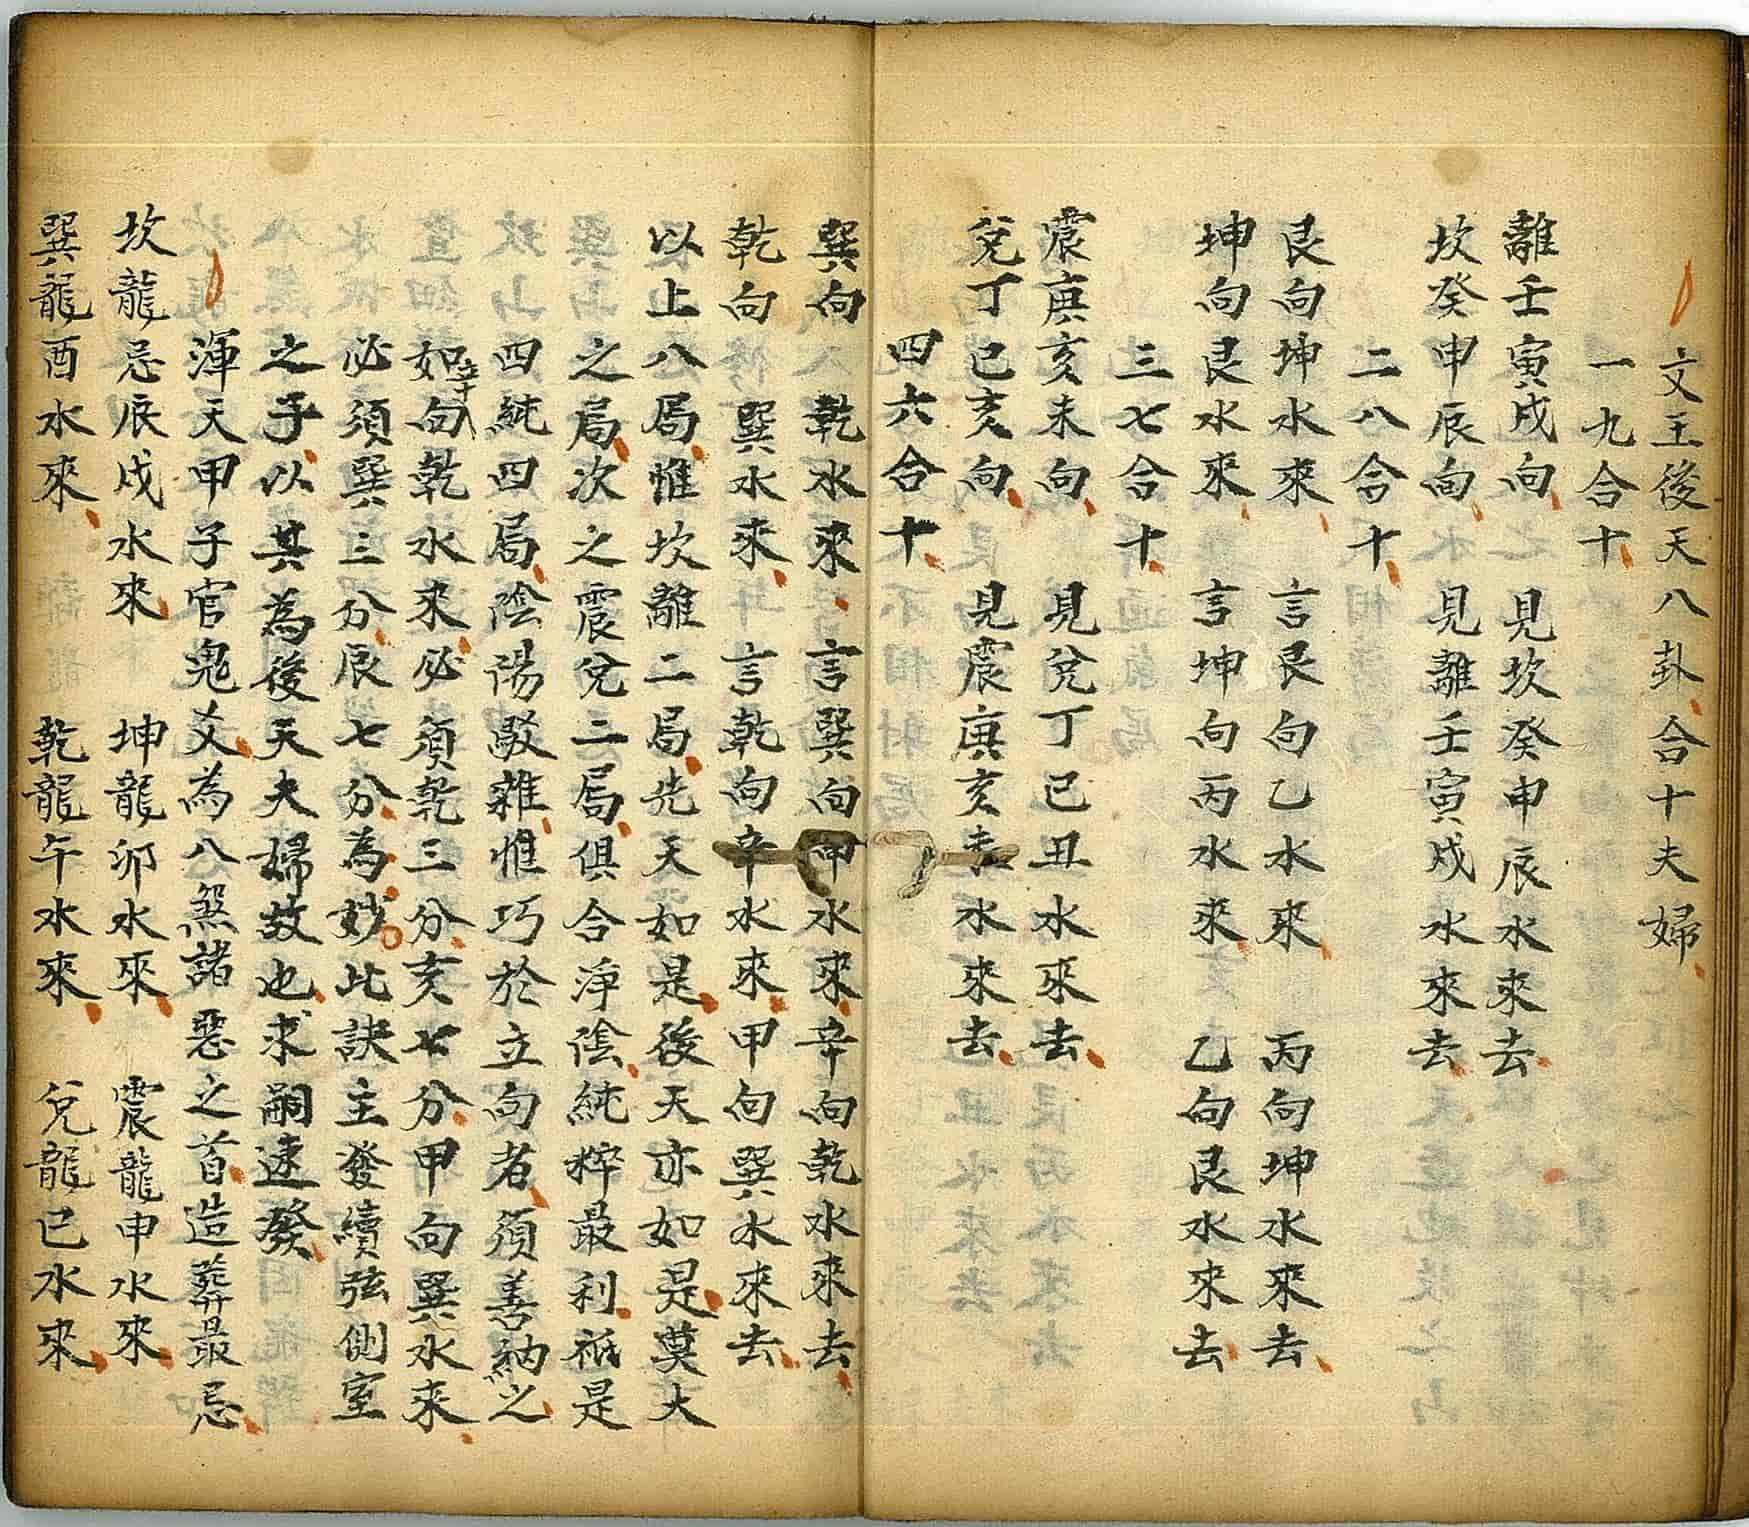 文王後天八卦合十夫婦
一九合十
離壬寅戌向 見坎癸申辰水來去
坎癸申辰向 見離壬寅戌水來去
二八合十
艮向坤水來 言艮向乙水來 丙向坤水來去
坤向艮水來 言坤向丙水來 乙向艮水來去
三七合十
震庚亥未向 見兌丁巳丑水來去
兌丁巳亥向 見震庚亥未水來去
四六合十
巽向 乾水來 言巽向甲水來辛向乾水來去
乾向 巽水來 言乾向辛水來甲向巽水來去
以上八局惟坎離二局先天如是後天亦如是莫大
之局次之震兌二局俱合淨陰純粹最利祇是
四純四局陰陽駁雜惟巧於立向者須善納之
如向乾水來必須乾三分亥七分甲向巽水來
必須巽三分辰七分為妙此訣主發續弦側室
之子以其為後天夫婦故也求嗣速發
渾天甲子官鬼爻為八煞諸惡之首造葬最忌
坎龍忌辰戌水來 坤龍卯水來 震龍申水來
巽龍酉水來 乾龍午水來 兌龍巳水來